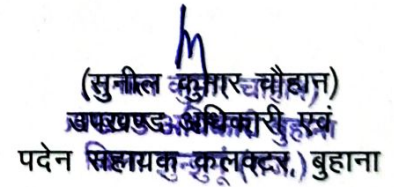 (सुनील कुमार चौहान)
उपखण्ड अधिकारी एवं
पदेन सहायक कलक्टर, बुहाना